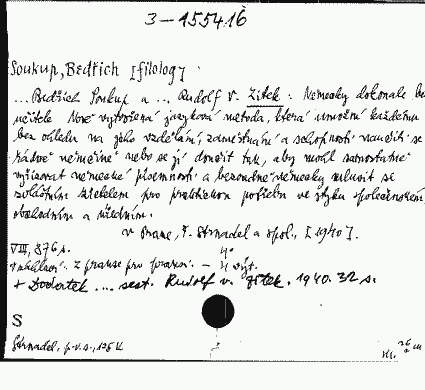 3-155416
Soukup, Bedřich [filolog]
... Bedřich Soukup a ... Rudolf V. Žitek: Německy dokonale bez
učitele. Nově vytvořená jazyková metoda, která umožní každému
bez ohledu na jeho vzdělání, zaměstnání a schopnosti naučiti se
řádně němčině nebo se jí doučit tak, aby mohl samostatně
vyřizovat německé písemnosti a bezvadně německy mluvit se
zvláštním zřetelem pro praktickou potřebu ve styku společenském
obchodním a úředním.
V Praze, F. Strnadel a spol., [1940].
VIII, 376 s.
z praxe pro praxi. - 4. vyd.
+ Dodatek ... sest. Rudolf V. Žitek. 1940. 32 s.
S
Strnadel, p.v.s., 125 K